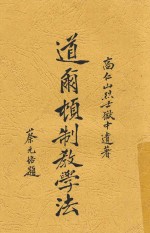 高仁山烈士獄中遺著
道爾頓制教學法
蔡元培題